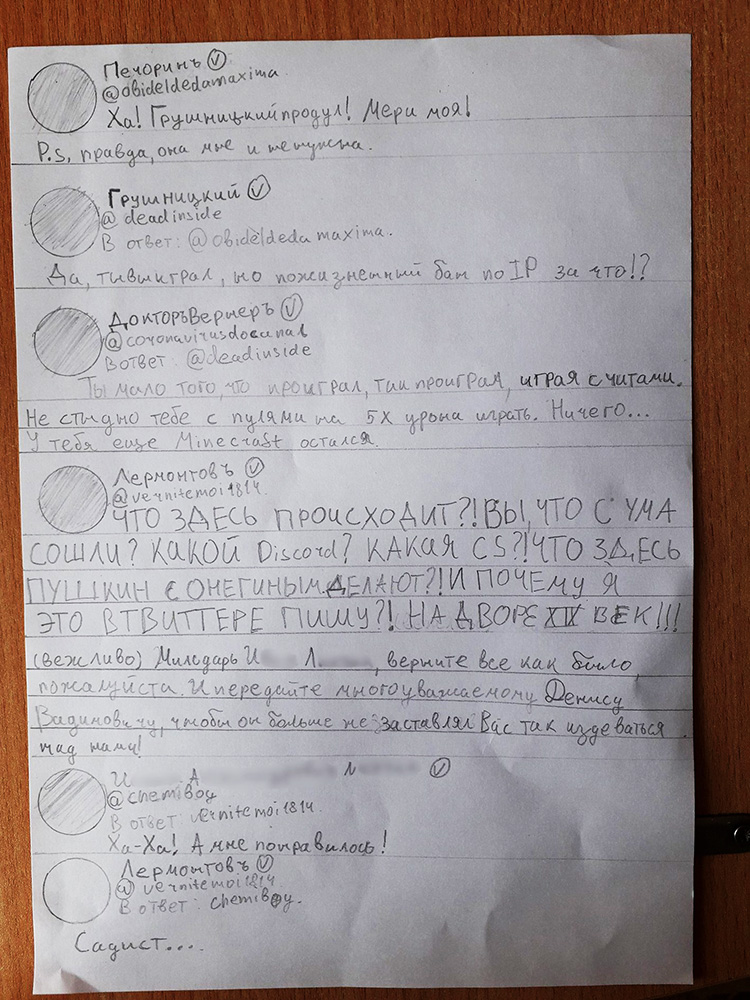 Печоринъ
@obideldedamaxima
Ха! Грушницкий продул! Мери моя!
P.s, правда, она мне и не нужна.
Грушницкий
@deadinside
В ответ: @obideldeda maxima.
Да, ты выиграл, но пожизненный бан по IP за что!?
ДокторъВернеръ
@coronavirusdocanal
В ответ @deadinside
Ты мало того, что проиграл, так проиграл, играя с читами.
Не стыдно тебе с пулями на 5X урона играть. Ничего...
У тебя еще Minecraft остался.
Лермонтовъ
@vernitemoi1814.
ЧТО ЗДЕСЬ ПРОИСХОДИТ?! ВЫ, ЧТО С УМА
СОШЛИ? КАКОЙ Discord? КАКАЯ CS?! ЧТО ЗДЕСЬ
ПУШКИН С ОНЕГИНЫМ ДЕЛАЮТ?! И ПОЧЕМУ Я
ЭТО В ТВИТТЕРЕ ПИШУ?! НА ДВОРЕ XIX ВЕК!!!
(вежливо) Милсдарь И Л , верните все как было,
пожалуйста. И передайте многоуважаемому Денису
Вадимовичу, чтобы он больше не заставлял Вас так издеваться
над нами!
И А Л
@chemiboy
В ответ: vernitemoi1814.
Ха-Ха! А мне понравилось!
Лермонтовъ
@vernitemoi1814
В ответ: chemiboy.
Садист....